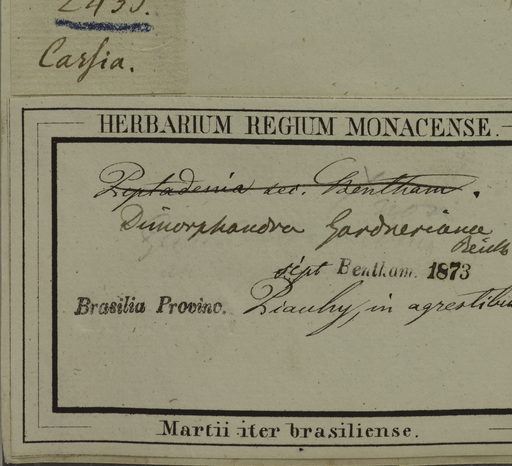 2435.
Cassia.
HERBARIUM REGIUM MONACENSE.
Piptadenia sec. Bentham.
Dimorphandra Gardneriana
sċipt Bentham. 1873
Brasilia Provinc. Piauhy, in agrestibus
Martii iter brasiliense.